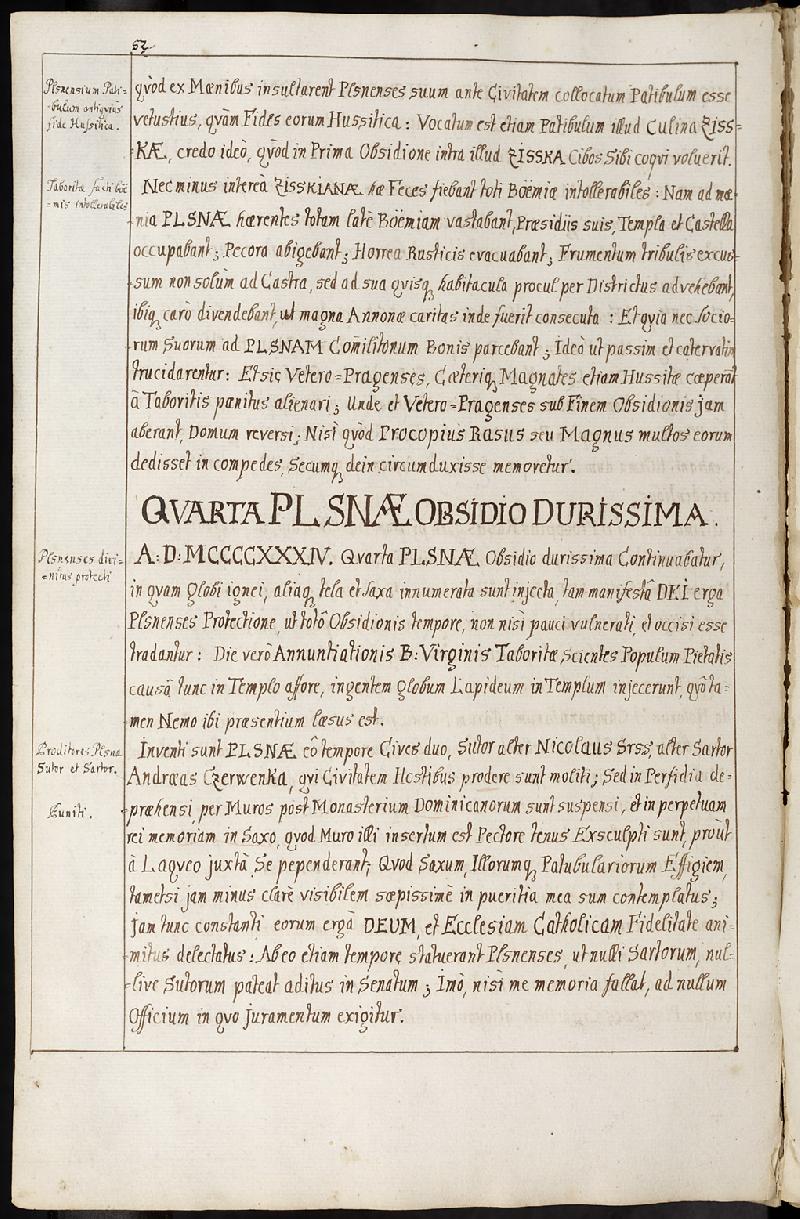 52
Plsnensium Pati=
=bulum antiquius
fide Hussitica.
qvòd ex Mœnibus insultarent Plsnenses suum ante Civitatem collocatum Patibulum esse
vetustius, qvàm Fides eorum Hussitica: Vocatum est etiam Patibulum illud Culina ZISS=
KÆ, credo ideò, qvòd in Prima Obsidione intra illud ZISSKA Cibos Sibi coqvi voluerit.
Taboritæ facti boë=
=mis intollerabiles
Nec minus intereà ZISSKIANÆ hæ Feces fiebant toti Boëmiæ intollerabiles: Nam ad mœ=
nia PLSNÆ hærentes totam latè Boëmiam vastabant, Præsidiis suis, Templa et Castella
occupabant; Pecora abigebant; Horrea Rusticis evacuabant; Frumentum tribulis excus=
sum non solùm ad Castra, sed ad sua qvisq, habitacula procul per Districtus advehebant,
ibiq, carò divendebant, ut magna Annonæ caritas inde fuerit consecuta: Et qvia nec Socio=
rum Suorum ad PLSNAM Com̃ilitonum Bonis parcebant; Ideò ut passim et catervatim
trucidarentur: Et sic Vetero=Pragenses, Cæteriq, Magnates etiam Hussitæ cœperãt
à Taboritis pœnitus alienari; Unde et Vetero=Pragenses sub Finem Obsidionis jam
aberant, Domum reversi; Nisi qvòd Procopius Rasus seu Magnus multos eorum
dedisset in compedes, Secumq, dein circumduxisse memoretur.
QVARTA PLSNÆ OBSIDIO DURISSIMA.
Plsnenses divi=
=nitus protecti
A: D: MCCCCXXXIV. Qvarta PLSNÆ Obsidio durissima Continuabatur,
in qvam Globi ignei, aliaq, tela et Saxa innumerata sunt injecta, tam manifestâ DEI erga
Plsnenses Protectione, ut totô Obsidionis tempore, non nisi pauci vulnerati, et occisi esse
tradantur: Die verò Annuntiationis B: Virginis Taboritæ Scientes Populum Pietatis
causâ tunc in Templo affore, ingentem Globum Lapideum in Templum injecerunt, qvô ta=
men Nemo ibi præsentium læsus est.
Proditores Plsnæ
Sutor et Sartor.
Inventi sunt PLSNÆ eô tempore Cives duo, Sutor alter Nicolaus Srss, alter Sartor
Andreas Czerwenka, qvi Civitatem Hostibus prodere sunt moliti; Sed in Perfidia de=
Puniti.
præhensi, per Muros post Monasterium Dominicanorum sunt suspensi, et in perpetuam
rei memoriam in Saxo, qvod Muro illi insertum est Pectore tenus Exsculpti sunt, proùt
à Laqveo juxtà Se pependerant; Qvod Saxum, Illorumq, Patubulariorum Effigiem,
tametsi jam minus clarè visibilem sœpissimè in pueritia mea sum contemplatus;
Jam tunc constanti eorum ergà DEUM, et Ecclesiam Catholicam Fidelitate ani=
mitus delectatus: Ab eo etiam tempore statuerant Plsnenses, ut nulli Sartorum, nul=
live Sutorum pateat aditus in Senatum; Imò, nisi me memoria fallat, ad nullum
Officium in qvo Juramentum exigitur.